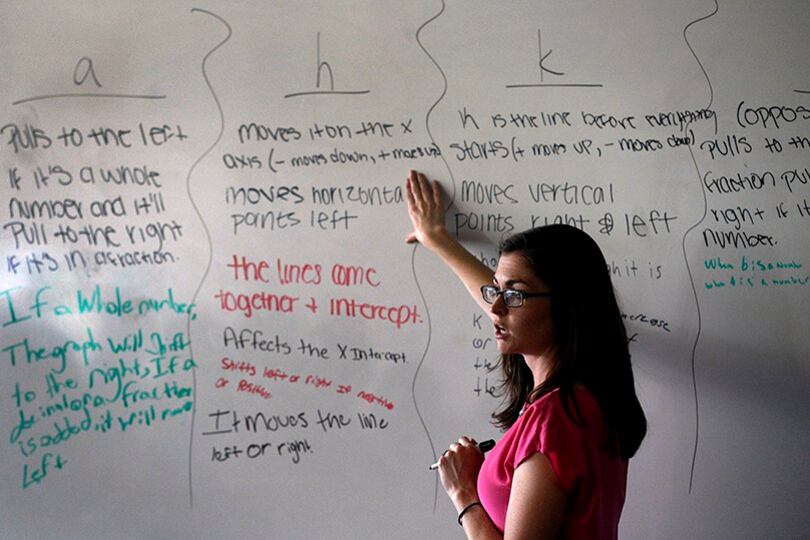 a
pulls to the left
If it's a whole
number and it'll
Pull to the right
if it's in a fraction.
If a Whole number,
The graph will shift
to the right, If a
fraction
is added, it will move
Left
h
moves it on the x
axis (- moves down, + moves up)
moves horizonta
points left
the lines come
together + intercept.
Affects the X Intercept.
Shifts left or right if negative
or Positive
It moves the line
left or right.
k
K is the line before everything
starts (+ moves up, - moves down)
moves vertical
points right & left
it is
K
or
the
the
(oppos
pulls to th
fraction pul
right if it
number.
when b is a number